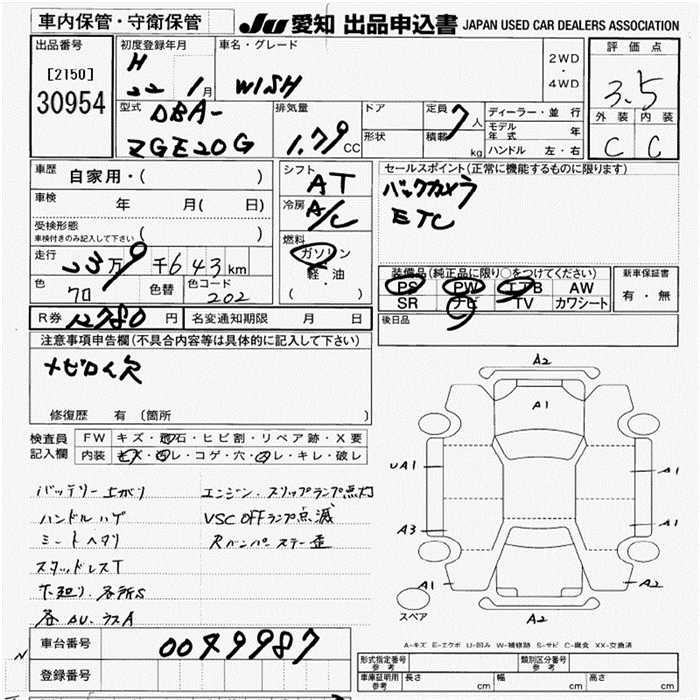 車内保管・守衛保管
JU 愛知 出品申込書 JAPAN USED CAR DEALERS ASSOCIATION
出品番号
[2150]
30954
初度登録年月
H
22 1月
車名・グレード
WISH
2WD
・
4WD
評価点
3.5
外装 内装
C C
型式
DBA-
ZGE20G
排気量
1.79 CC
ドア
形状
定員 7人
積載 kg
ディーラー・並行
モデル年式 年
ハンドル 左・右
車歴
自家用・( )
車検
年 月( 日)
受検形態
車検付きのみ記入して下さい ( )
走行
23万9千643km
色
クロ
色替
色コード
202
R券 12780円
名変通知期限 月 日
シフト
AT
冷房
A/C
燃料
ガソリン
・
軽油
( )
セールスポイント(正常に機能するものに限ります)
バックカメラ
ETC
装備品(純正品に限り○をつけてください)
PS PW エアB AW
SR ナビ TV カワシート
新車保証書
有・無
後日品
注意事項申告欄(不具合内容等は具体的に記入して下さい)
メモロイ欠
修復歴 有(箇所 )
検査員
記入欄
FW キズ・飛石・ヒビ割・リペア跡・X要
内装 キズ・汚レ・コゲ・穴・スレ・キレ・破レ
バッテリー上がり
ハンドルハゲ
シートヘタリ
スタッドレスT
下廻り・各所S
各AU、ラスA
エンジン・スリップランプ点灯
VSC OFFランプ点滅
Rバンパーステー歪
A2
A1
UA1
A1
A3
A1
A1
A2
A2
スペア
A-キズ E-エクボ U-凹み W-補修跡 S-サビ C-腐食 XX-交換済
車台番号
0049987
登録番号
型式指定番号
参考
類別区分番号
参考
車庫証明用
参考
長さ cm
幅 cm
高さ cm